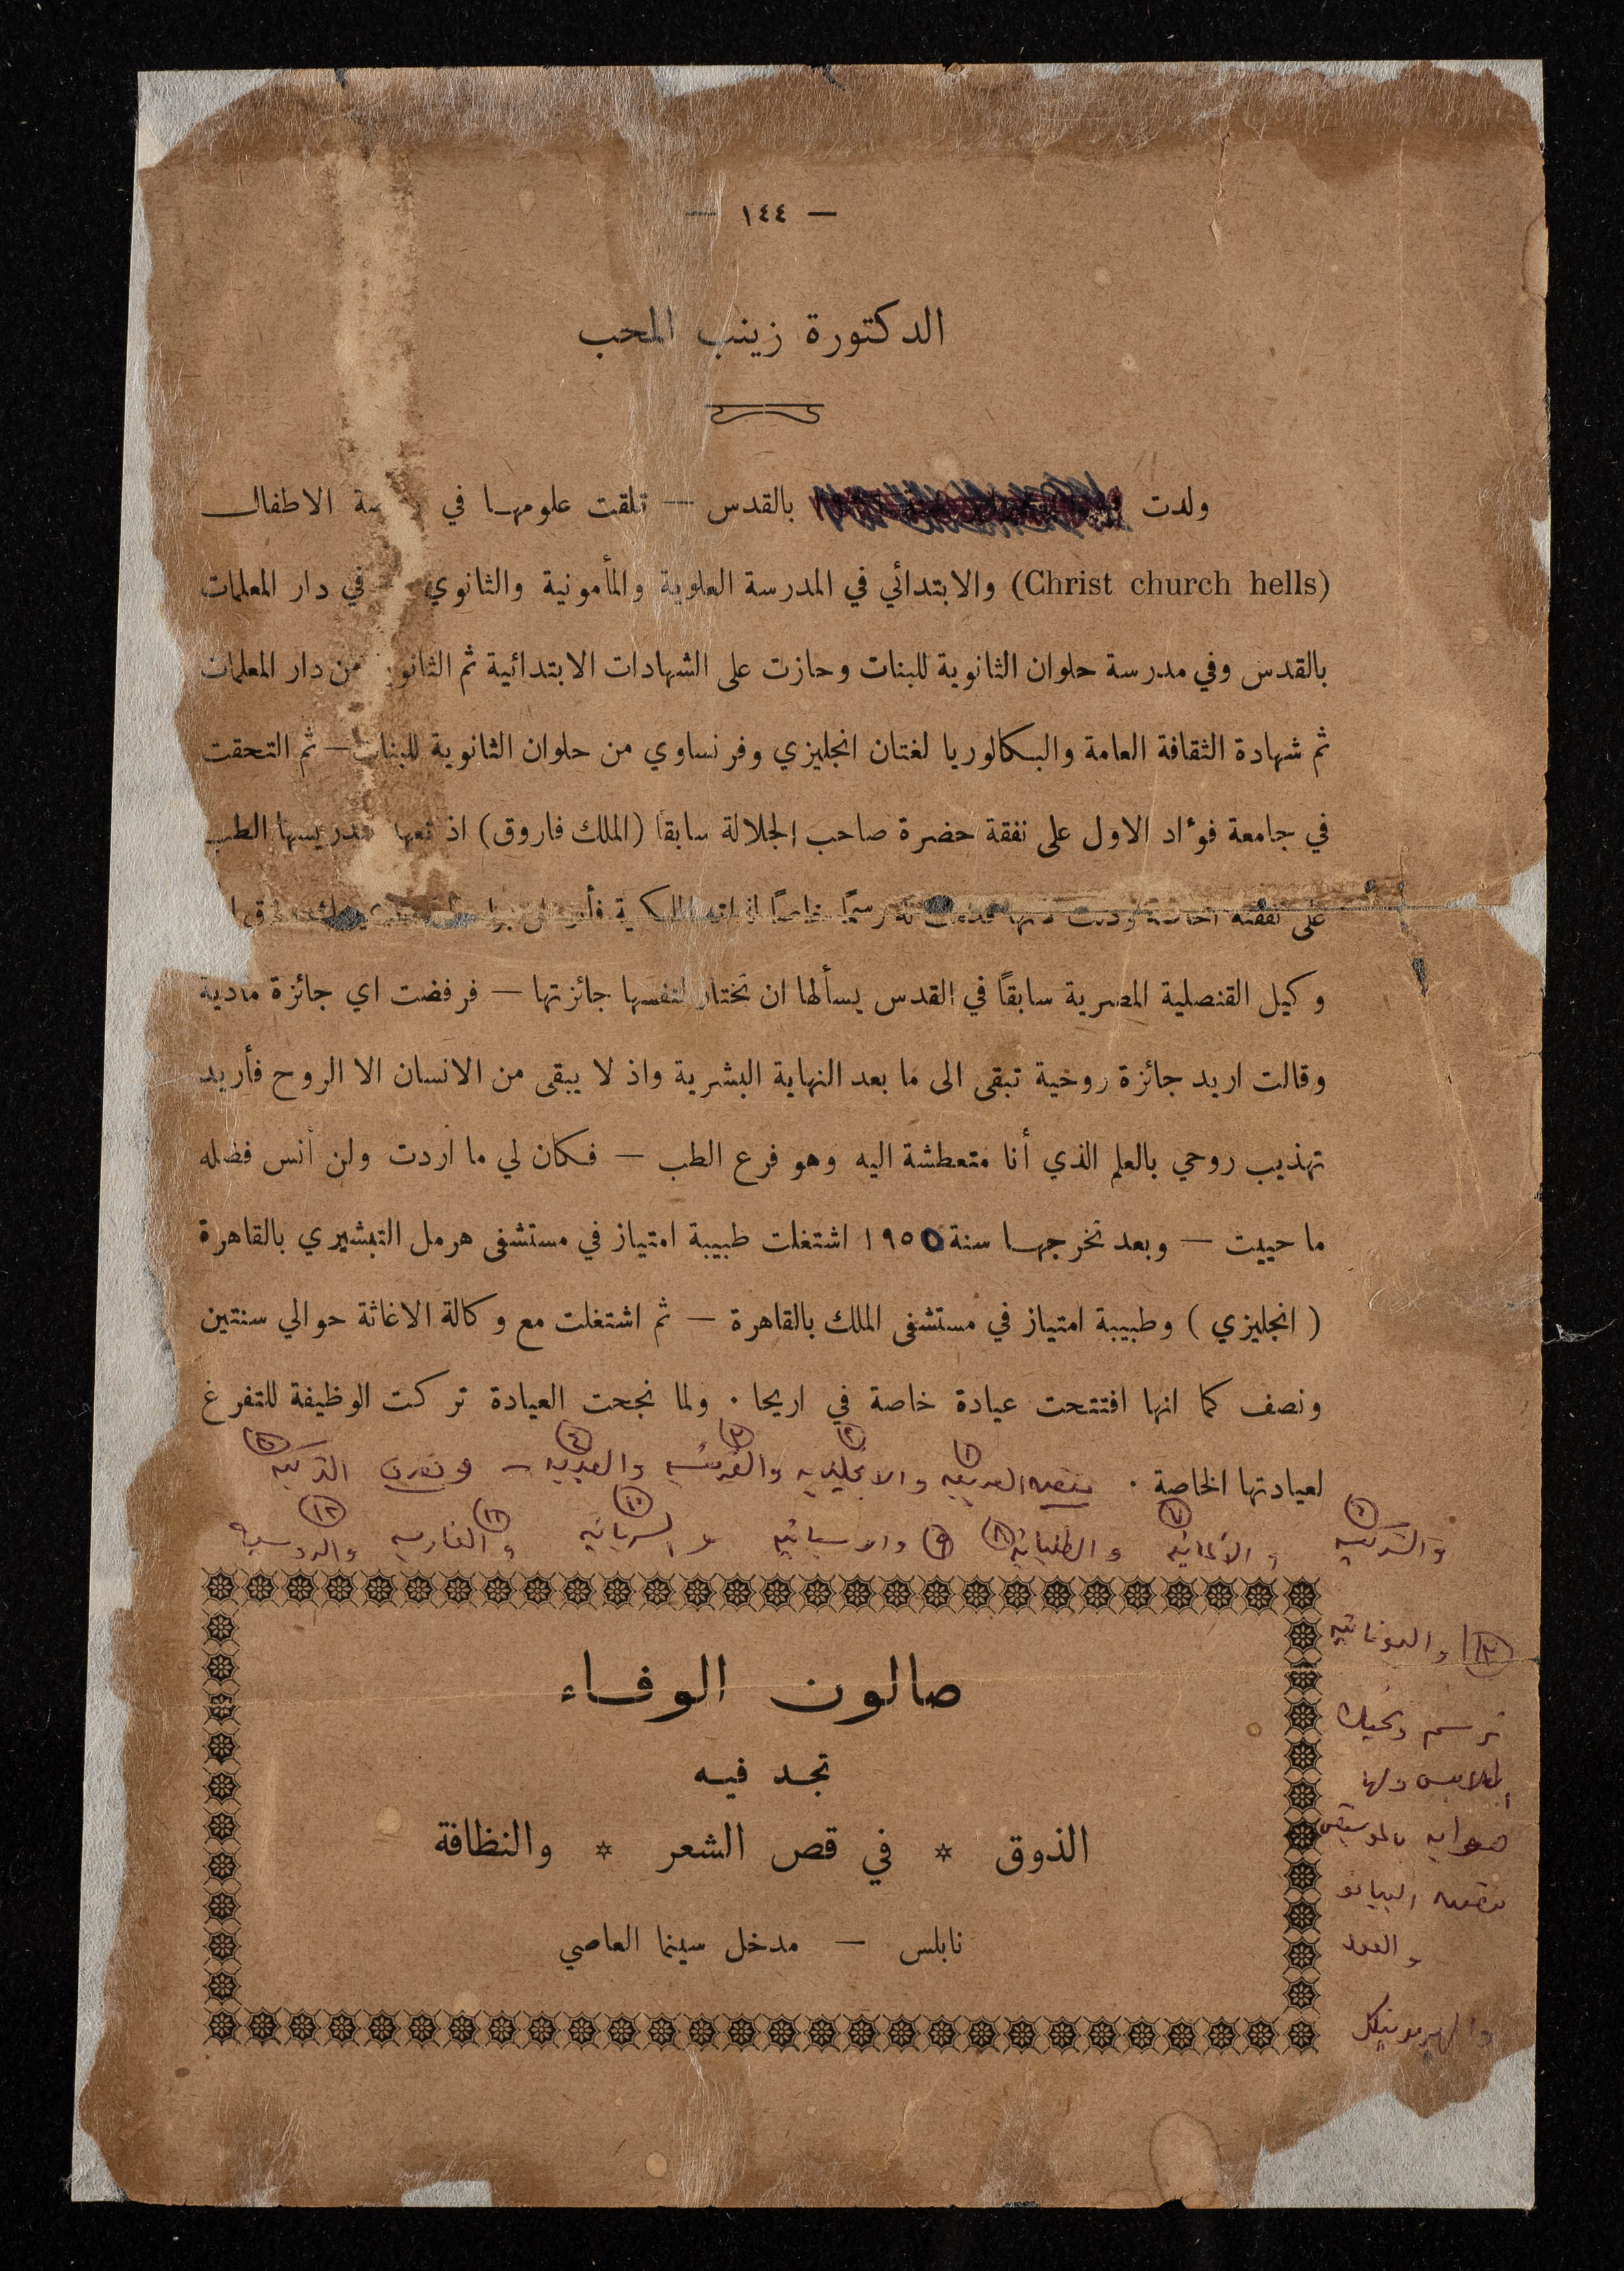 — ١٤٤ —
الدكتورة زينب المحب
ولدت بالقدس — تلقت علومها في الاطفال
(Christ church hells) والابتدائي في المدرسة العلوية والمأمونية والثانوي في دار المعلمات
بالقدس وفي مدرسة حلوان الثانوية للبنات وحازت على الشهادات الابتدائية ثم الثانوي من دار المعلمات
ثم شهادة الثقافة العامة والبكالوريا لغتان انجليزي وفرنساوي من حلوان الثانوية للبنات — ثم التحقت
في جامعة فؤاد الاول على نفقة حضرة صاحب الجلالة سابقا (الملك فاروق) اذ الطب
على نفقته رسميًا خاصًا
وكيل القنصلية المصرية سابقاً في القدس يسألها ان تختار لنفسها جائزتها — فرفضت اي جائزة مادية
وقالت اريد جائزة روحية تبقى الى ما بعد النهاية البشرية واذ لا يبقى من الانسان الا الروح فأريد
تهذيب روحي بالعلم الذي أنا متعطشة اليه وهو فرع الطب — فكان لي ما اردت ولن أنس فضله
ما حييت — وبعد تخرجها سنة ١٩٥٥ اشتغلت طبيبة امتياز في مستشفى هرمل التبشيري بالقاهرة
( انجليزي ) وطبيبة امتياز في مستشفى الملك بالقاهرة — ثم اشتغلت مع وكالة الاغاثة حوالي سنتين
ونصف كما انها افتتحت عيادة خاصة في اريحا . ولما نجحت العيادة تركت الوظيفة للتفرغ
لعيادتها الخاصة . تتقن العربيه ١ والانجليزيه ٢ والفرنسيه ٣ والعبريه ٤ — وتعرف التركيه ٥
٦ والالمانيه ٧ والطليانيه ٨ ٩ والاسبانيه والسريانيه ١٠ والفارسيه ١١ والروسيه ١٢
١٣ واليونانيه
ترسم وتحيك
الملابس ولها
هوايه بالموسيقى
تتقن البيانو
والعود
صالون الوفاء
تجد فيه
الذوق * في قص الشعر * والنظافة
نابلس — مدخل سينما العاصي